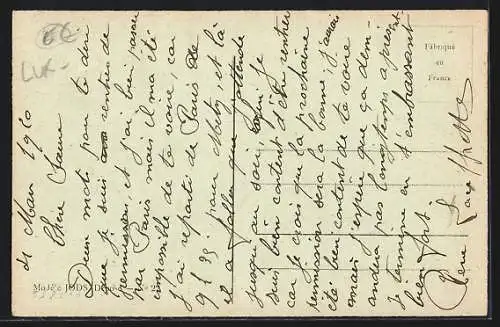 21 Mars 1920
Chère Jeanne
Deux mots pour te dire
que je suis rentrée de
permission, et j'ai bien passé
par Paris mais il m'a été
impossible de te voir, car
j'ai reparti de Paris de
9h 35 pour Metz, et là
il a fallu que j'attende
jusqu'au soir, je
suis bien content d'être rentrée
car je crois que la prochaine
permission sera la bonne, j'aurais
été bien content de te voir
j'espère que ça dem-
andra pas longtemps à présent
Je termine en t'embrassant
bien fort
Fabriqué
en
France
6€
LUX-